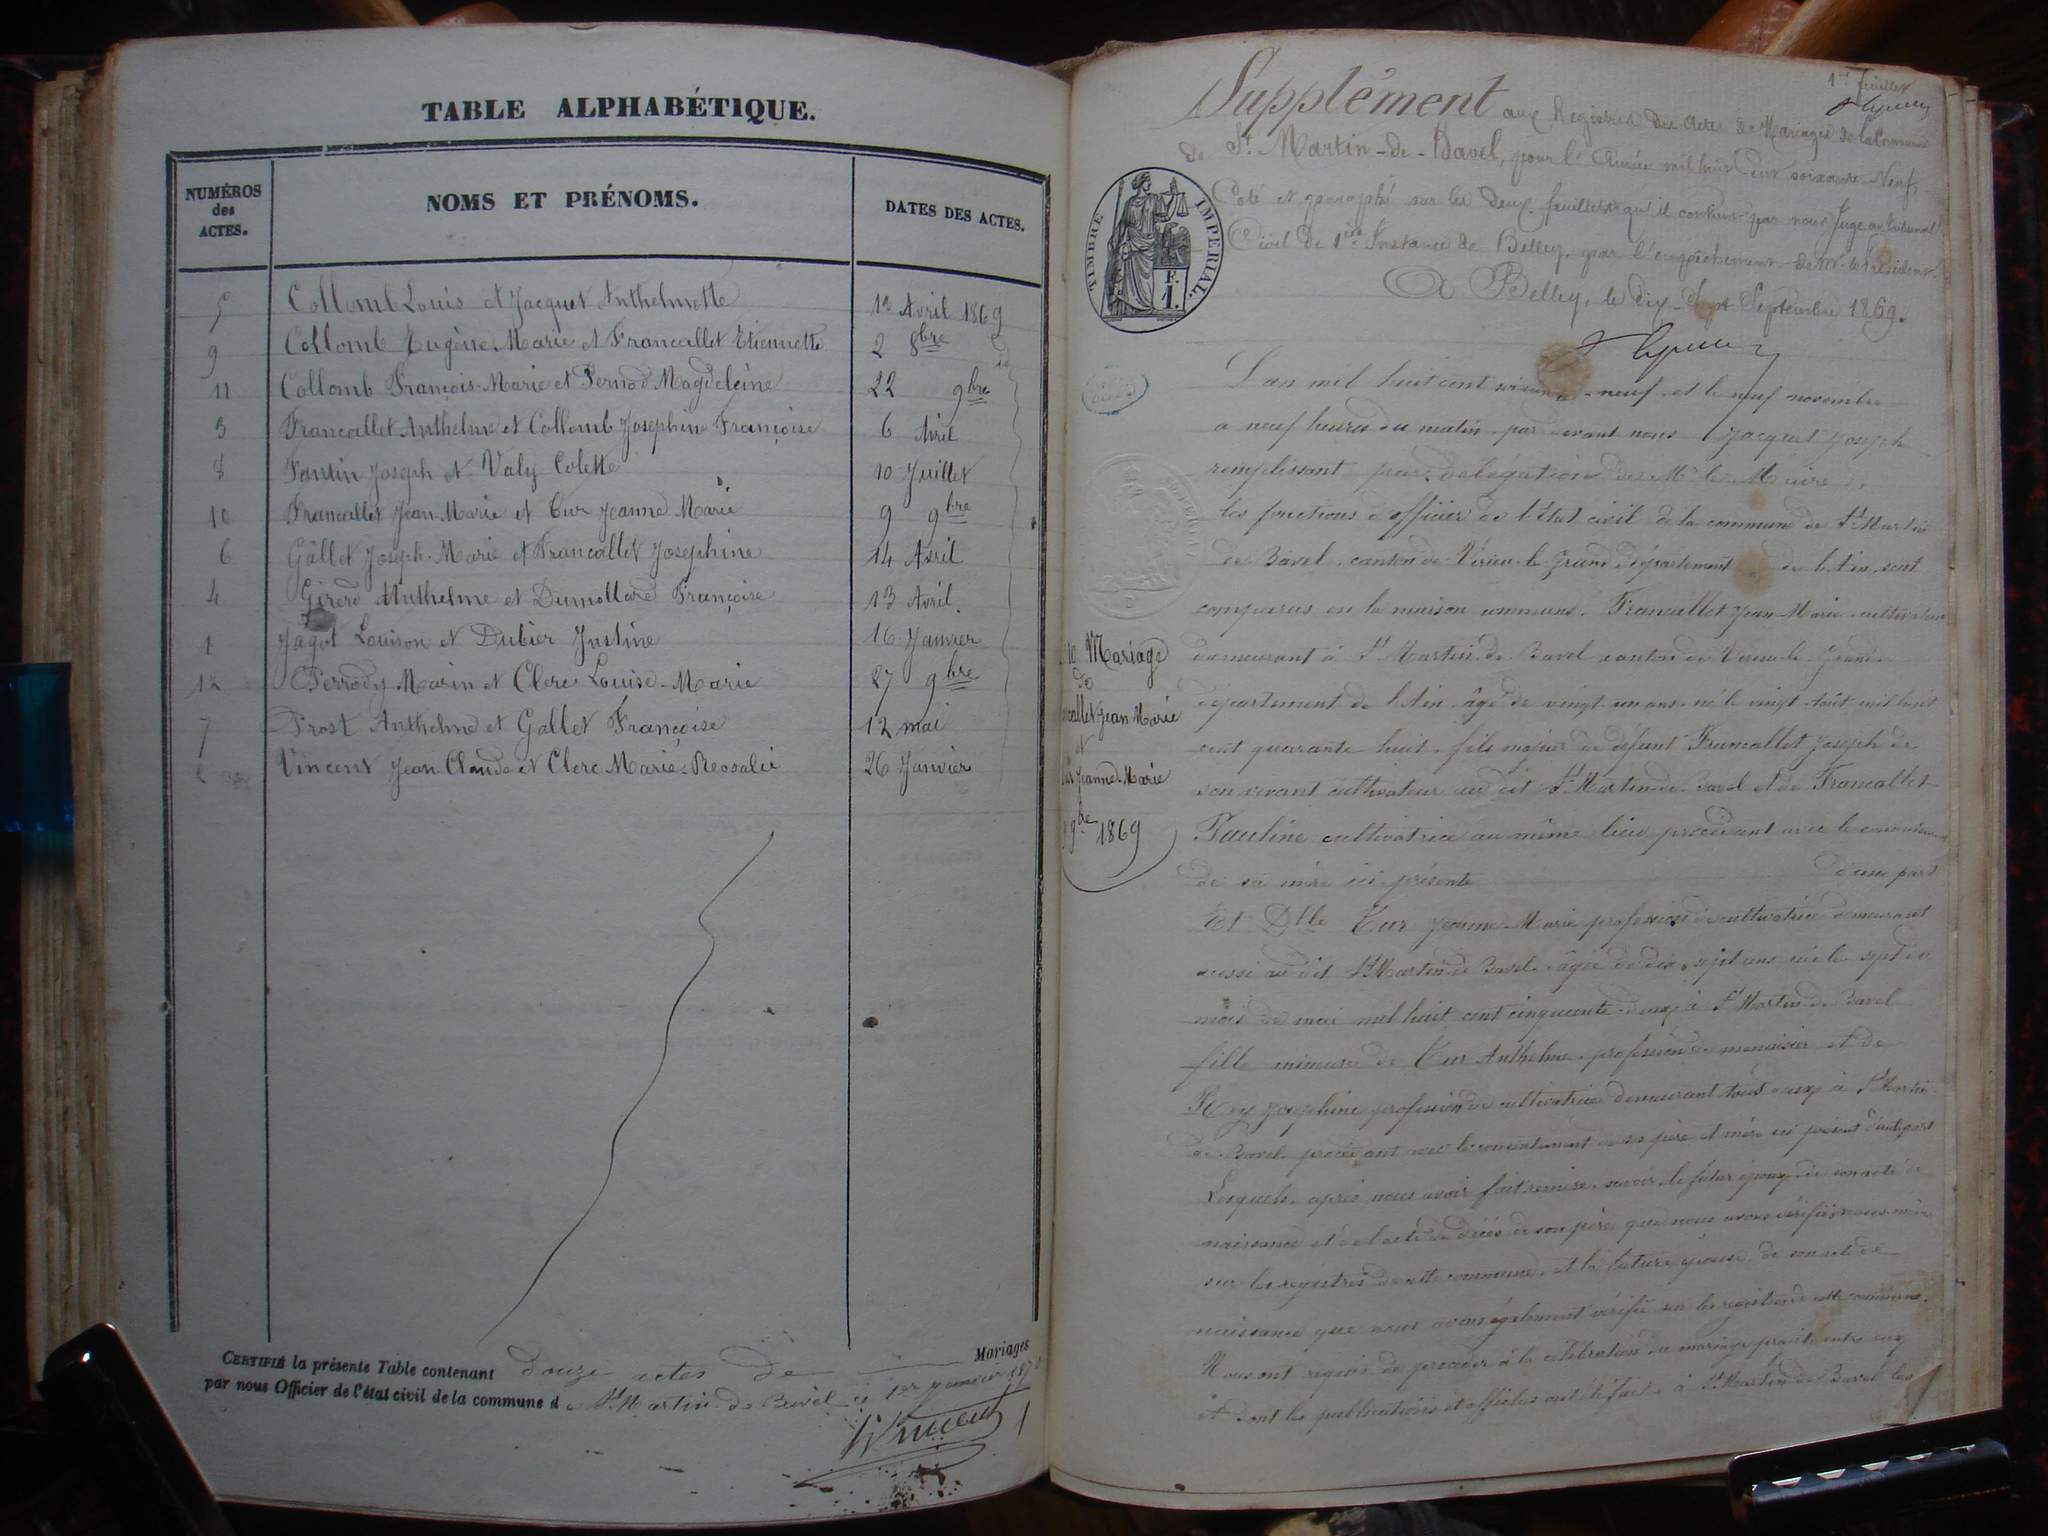 TABLE ALPHABÉTIQUE.
NUMÉROS
des
ACTES.
NOMS ET PRÉNOMS.
DATES DES ACTES.
5 Collomb Louis et Jacquet Anthelmette 12 Avril 1869
9 Collomb Eugène Marie et Francallet Etiennette 2 8bre id
11 Collomb François-Marie et Pernod Magdeleine 22 9bre
3 Francallet Anthelme et Collomb Josephine Françoise 6 Avril
8 Fantin Joseph et Valy Colette 10 Juillet
10 Francallet Jean Marie et Cur Jeanne Marie 9 9bre
6 Gallet Joseph-Marie et Francallet Josephine 14 Avril
4 Girerd Anthelme et Dumollard Françoise 13 Avril.
1 Jagot Louison et Dubier Justine 16 Janvier
12 Perrody Marin et Clerc Louise-Marie 27 9bre
7 Prost Anthelme et Gallet Françoise 12 mai
2 Vincent Jean Claude et Clerc Marie-Rosalie 26 Janvier
CERTIFIÉ la présente Table contenant douze actes de Mariages
par nous Officier de l'état civil de la commune de St Martin de Bavel ce 1er janvier 1870
Vincent
1er feuillet
Supplément aux Registres des actes de Mariages de la Commune
de St. Martin-de-Bavel, pour l'Année mil huit cent soixante-Neuf,
Coté et paraphé sur les deux feuillets qu'il contient par nous Juge au tribunal
Civil de 1ère Instance de Belley, par l'empêchement de Mr. le Président.
A Belley, le dix-sept Septembre 1869.
TIMBRE IMPERIAL.
F.
1.
L'an mil huit cent soixante-neuf et le neuf novembre
a neuf heures du matin par devant nous Jacquet Joseph
remplissant par délégation de Mr le Maire
les fonctions d'officier de l'état civil de la commune de St Martin
de Bavel, canton de Virieu le Grand, département de l'Ain, sont
comparus en la maison commune. Francallet Jean Marie cultivateur
demeurant à St Martin de Bavel canton de Virieu le Grand
département de l'Ain, âgé de vingt un ans né le vingt août mil huit
cent quarante huit, fils majeur de défunt Francallet Joseph de
son vivant cultivateur au dit St Martin de Bavel et de Francallet
Pauline cultivatrice au même lieu procédant avec le consentement
de sa mère ici présente d'une part
Et Dlle Cur Jeanne Marie profession de cultivatrice demeurant
aussi au dit St Martin de Bavel âgée de dix sept ans née le sept du
mois de mai mil huit cent cinquante deux à St Martin de Bavel
fille mineure de Cur Anthelme profession de menuisier et de
Rey Josephine profession de cultivatrice demeurant tous deux à St Martin
de Bavel procédant avec le consentement de ses père et mère ici présent d'autre part
Lesquels après nous avoir fait remise, savoir, le futur époux de son acte de
naissance et de l'acte de décès de son père que nous avons vérifié nous même
sur les registres de cette commune et la future épouse de son acte de
naissance que nous avons également vérifié sur les registres de cette commune.
Nous ont requis de procéder à la célébration du mariage projeté entre eux
et dont les publications et affiches ont été faites à St Martin de Bavel les
10 Mariage
de
callet Jean Marie
et
Cur Jeanne-Marie
9 9bre 1869